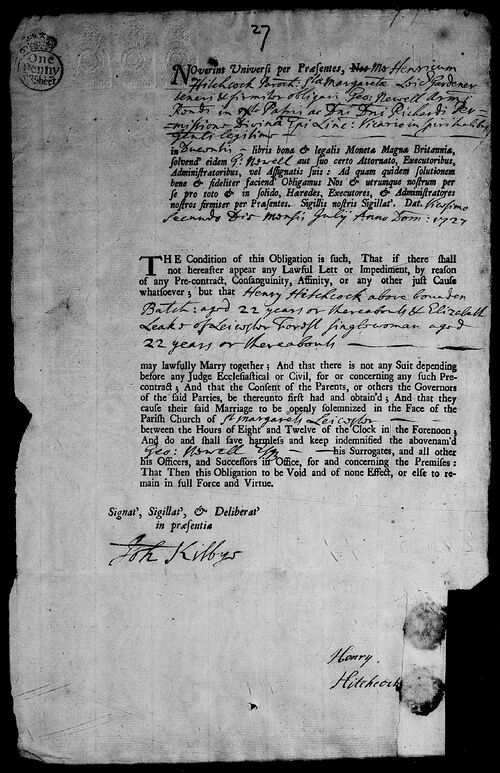 27
One
Penny
NOverint Universi per Præsentes, Nos Me Henricum
Hitchcock Paroch: Sta Margareta Leic Gardener
teneri & firmiter obligari Geo: Newell Arm
Patris ac Dni Dni Richardi Per-
missione Divina Epi Linc: Vicario in Spiritualibus
legitime
in Ducentis — libris bona & legalis Moneta Magna Britanniæ,
solvend' eidem G: Newell aut suo certo Attornato, Executoribus,
Administratoribus, vel Assignatis suis: Ad quam quidem solutionem
bene & fideliter faciend' Obligamus Nos & utrumque nostrum per
se pro toto & in solido, Hæredes, Executores, & Administratores
nostros firmiter per Præsentes. Sigillis nostris Sigillat'. Dat. Vicesimo
Secundo Die Mensis July Anno Dom: 1727
THE Condition of this Obligation is such, That if there shall
not hereafter appear any Lawful Lett or Impediment, by reason
of any Pre-contract, Consanguinity, Affinity, or any other just Cause
whatsoever; but that Henry Hitchcock above bounden
Batch: aged 22 years or thereabouts & Elizabeth
Leake of Leicester singlewoman aged
22 years or thereabouts —
may lawfully Marry together; And that there is not any Suit depending
before any Judge Ecclesiastical or Civil, for or concerning any such Pre-
contract; And that the Consent of the Parents, or others the Governors
of the said Parties, be thereunto first had and obtain'd; And that they
cause their said Marriage to be openly solemnized in the Face of the
Parish Church of St Margarets Leicester —
between the Hours of Eight and Twelve of the Clock in the Forenoon;
And do and shall save harmless and keep indemnified the abovenam'd
Geo: Newell Esq — his Surrogates, and all other
his Officers, and Successors in Office, for and concerning the Premises:
That Then this Obligation to be Void and of none Effect, or else to re-
main in full Force and Virtue.
Signat', Sigillat', & Deliberat'
in præsentia
Joh Kilbye
Henry
Hitchcock